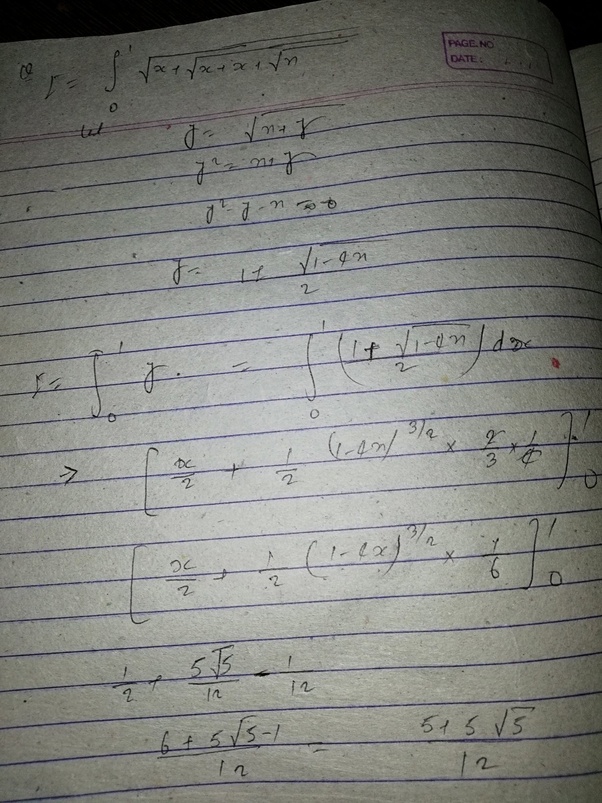 PAGE NO
DATE:
Q I = ∫₀¹ √x+√x+x+√x
let
y = √x+y
y² = x+y
y²-y-x=0
y = 1+ √1-4x / 2
I = ∫₀¹ y. = ∫₀¹ (1+ √1-4x / 2) dx
⇒ [x/2 + 1/2 (1-4x)^3/2 × 2/3 × 1/4]₀¹
[x/2 + 1/2 (1-4x)^3/2 × 1/6]₀¹
1/2 + 5√5/12 - 1/12
6+5√5-1 / 12 = 5+5√5 / 12